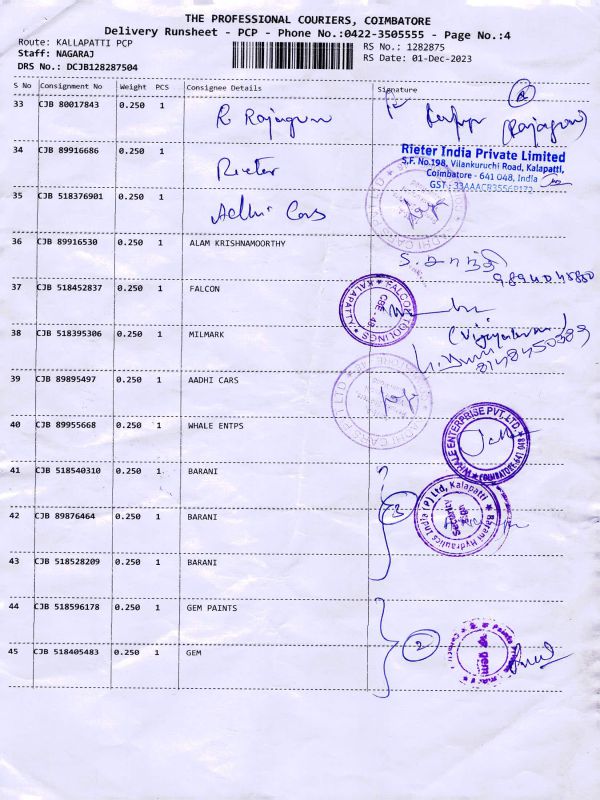 THE PROFESSIONAL COURIERS, COIMBATORE
Delivery Runsheet - PCP - Phone No.:0422-3505555 - Page No.:4
Route: KALLAPATTI PCP
RS No.: 1282875
Staff: NAGARAJ
RS Date: 01-Dec-2023
DRS No.: DCJB128287504
S No Consignment No Weight PCS Consignee Details Signature
33 CJB 80017843 0.250 1 R Rajagun
(Rajagun)
34 CJB 89916686 0.250 1 Rieter
Rieter India Private Limited
S.F. No.198, Vilankuruchi Road, Kalapatti,
Coimbatore - 641 048, India
GST : 33AAACR3556B1Z2
35 CJB 518376901 0.250 1 Adhi Cars
36 CJB 89916530 0.250 1 ALAM KRISHNAMOORTHY
37 CJB 518452837 0.250 1 FALCON
FALCON TOOLINGS ★ KALAPATTI ★
CBE - 48
38 CJB 518395306 0.250 1 MILMARK
8148450389
39 CJB 89895497 0.250 1 AADHI CARS
40 CJB 89955668 0.250 1 WHALE ENTPS
WHALE ENTERPRISE PVT. LTD. ★ COIMBATORE-641 048 ★
41 CJB 518540310 0.250 1 BARANI
3
42 CJB 89876464 0.250 1 BARANI
Barani Hydraulics India (P) Ltd, Kalapatti ★
Security
43 CJB 518528209 0.250 1 BARANI
44 CJB 518596178 0.250 1 GEM PAINTS
2
45 CJB 518405483 0.250 1 GEM
gem